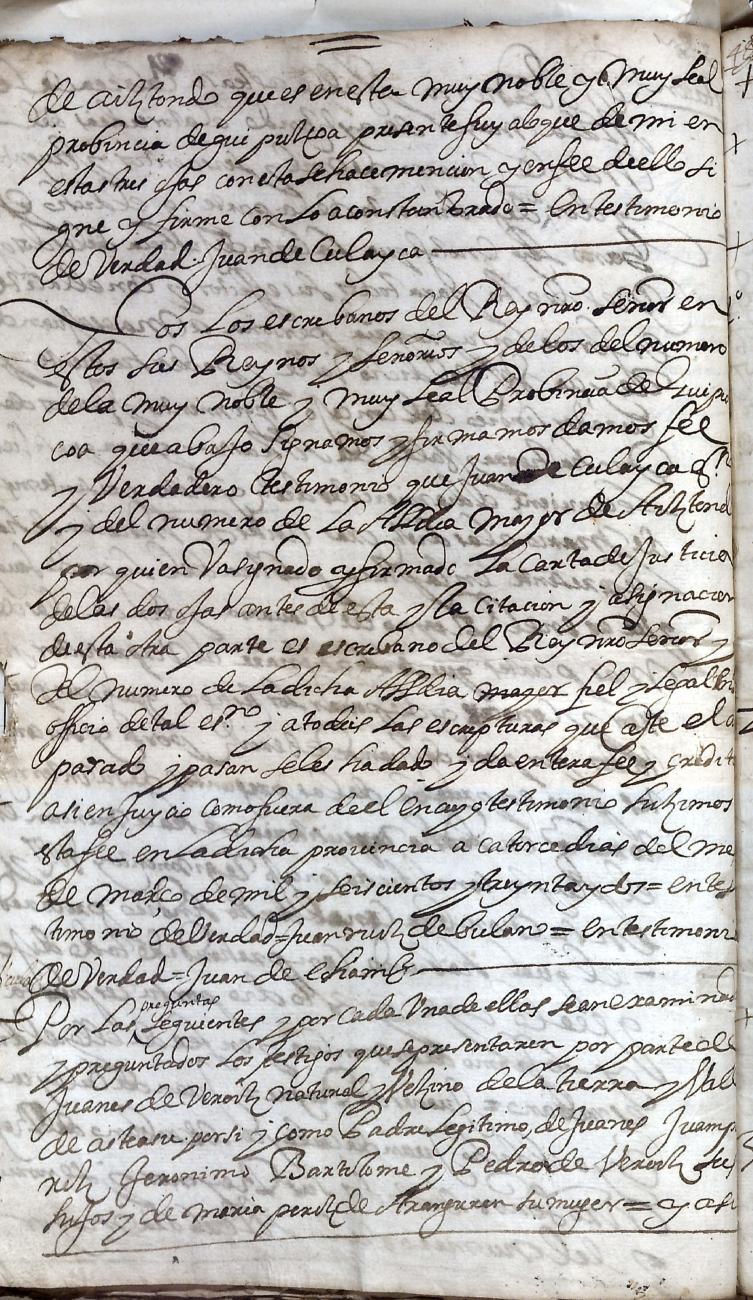 de aiztondo que es en esta muy noble y muy leal
probincia de guipuzcoa presente fuy a lo que de mi en
estas tres ojas con esta se hace mencion y en fee de ello si
gne y firme con lo acostumbrado = En testimonio
de Verdad. Juan de Culayca
Nos los escrebanos del Rey nro señor en
estos sus Reynos y señorios y de los del numero
de la muy noble y muy leal Probincia de Guipuz
coa que abajo signamos y firmamos damos fee
y Verdadero testimonio que Juan de Culayca es.no
y del numero de la Alldia mayor de Aiztondo
por quien va signado y firmado la Carta de Justicia
de las dos ojas antes de esta y la citacion y asignacion
de esta otra parte es escrebano del Rey nro señor y
del numero de la dicha Alldia mayor fiel y legal
officio de tal es.no y a todas las escripturas que ante el an
pasado y pasan se les ha dado y da entera fee y credito
asi en juycio como fuera de el En cuyo testimonio hizimos
esta fee en la dicha provincia a catorce dias del mes
de março de mil y seiscientos y treynta y dos = en tes
timonio de Verdad = Juan ruiz de = En testimonio
de Verdad = Juan de
Por las preguntas seguientes y por cada Una de ellas sean examinados
y preguntados los testigos que se presentaren por parte de
Juanes de Veroiz natural y Vezino de la tierra y Valle
de asteasu por si y como Padre legitimo de Juanes Juam
Jeronimo Bartolome y Pedro de Veroiz sus
hijos y de maria perez de Aranguren su muger = y asi